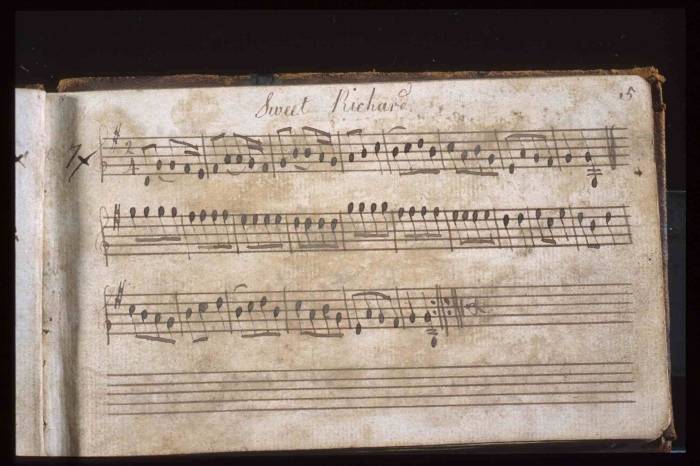 Sweet Richard
15
7x
2
4